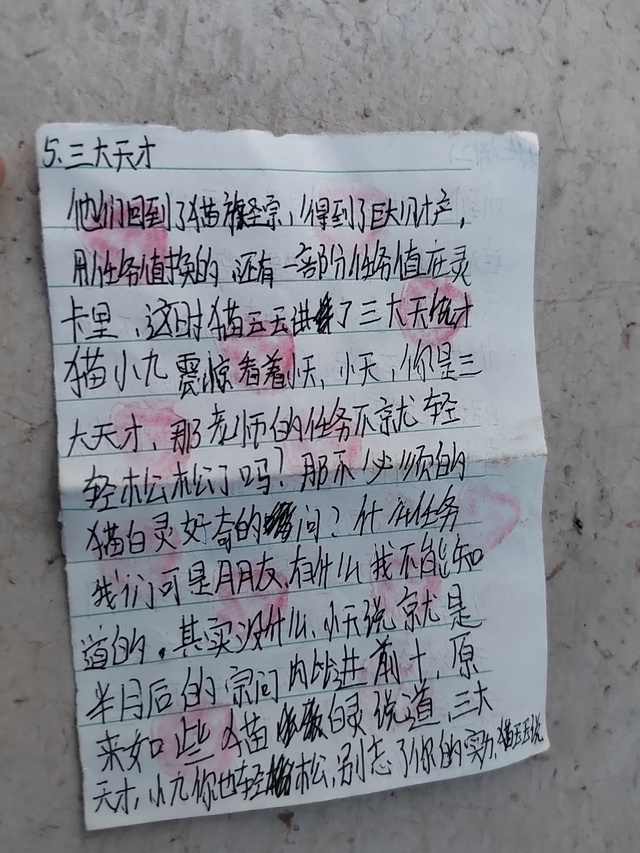 5、三大天才
他们回到了猫族圣宗,得到了巨大财产,
用任务值换的,还有一部分任务值在灵
卡里、这时猫五天进了三大天才
猫小九震惊看着小天,小天,你是三
大天才、那老师的任务不就轻
轻松松了吗?那不必须的
猫白灵好奇的问?什么任务
我们可是朋友、有什么我不能知
道的。其实没什么、小天说就是
半月后的宗门内比进前十,原
来如些猫白灵说道,三大
天才,小九你也轻松,别忘了你的实力,猫五五说